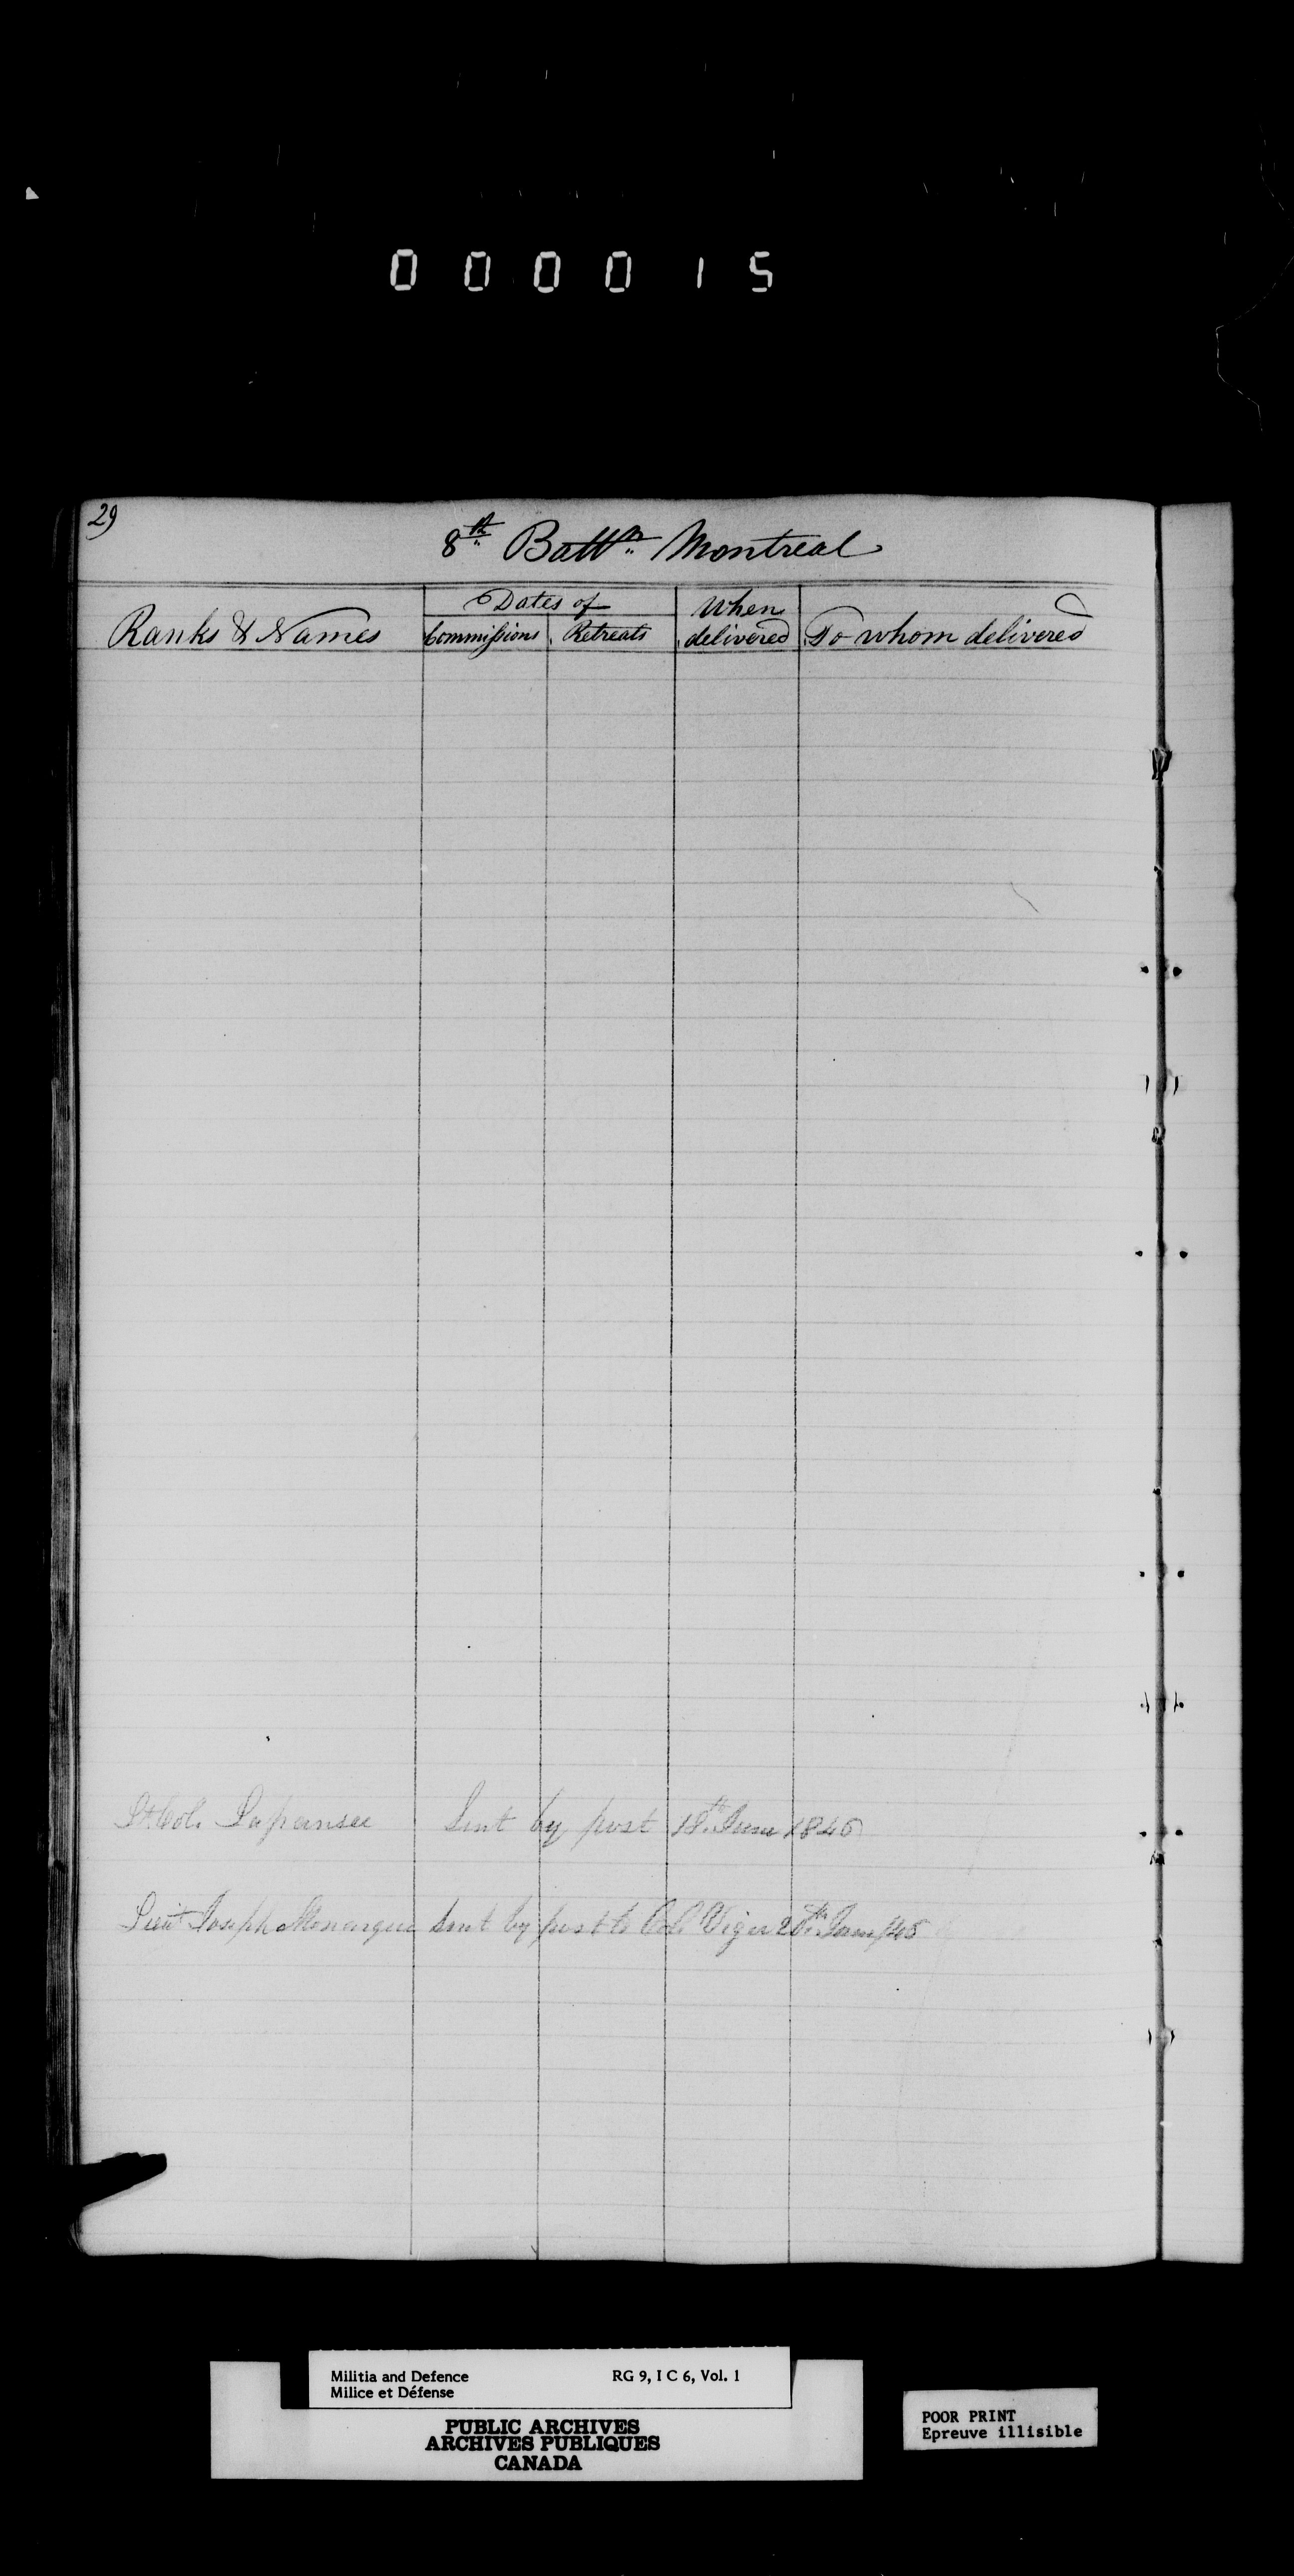 000015
29
8th Battn Montreal
Ranks & Names
Dates of
Commissions
Retreats
When
delivered
To whom delivered
Lt. Col. Lapensee Sent by post 18th June 1845
Lieut Joseph Monarque Sent by post to Col. Viger 20th June/45
Militia and Defence RG 9, I C 6, Vol. 1
Milice et Défense
PUBLIC ARCHIVES
ARCHIVES PUBLIQUES
CANADA
POOR PRINT
Epreuve illisible